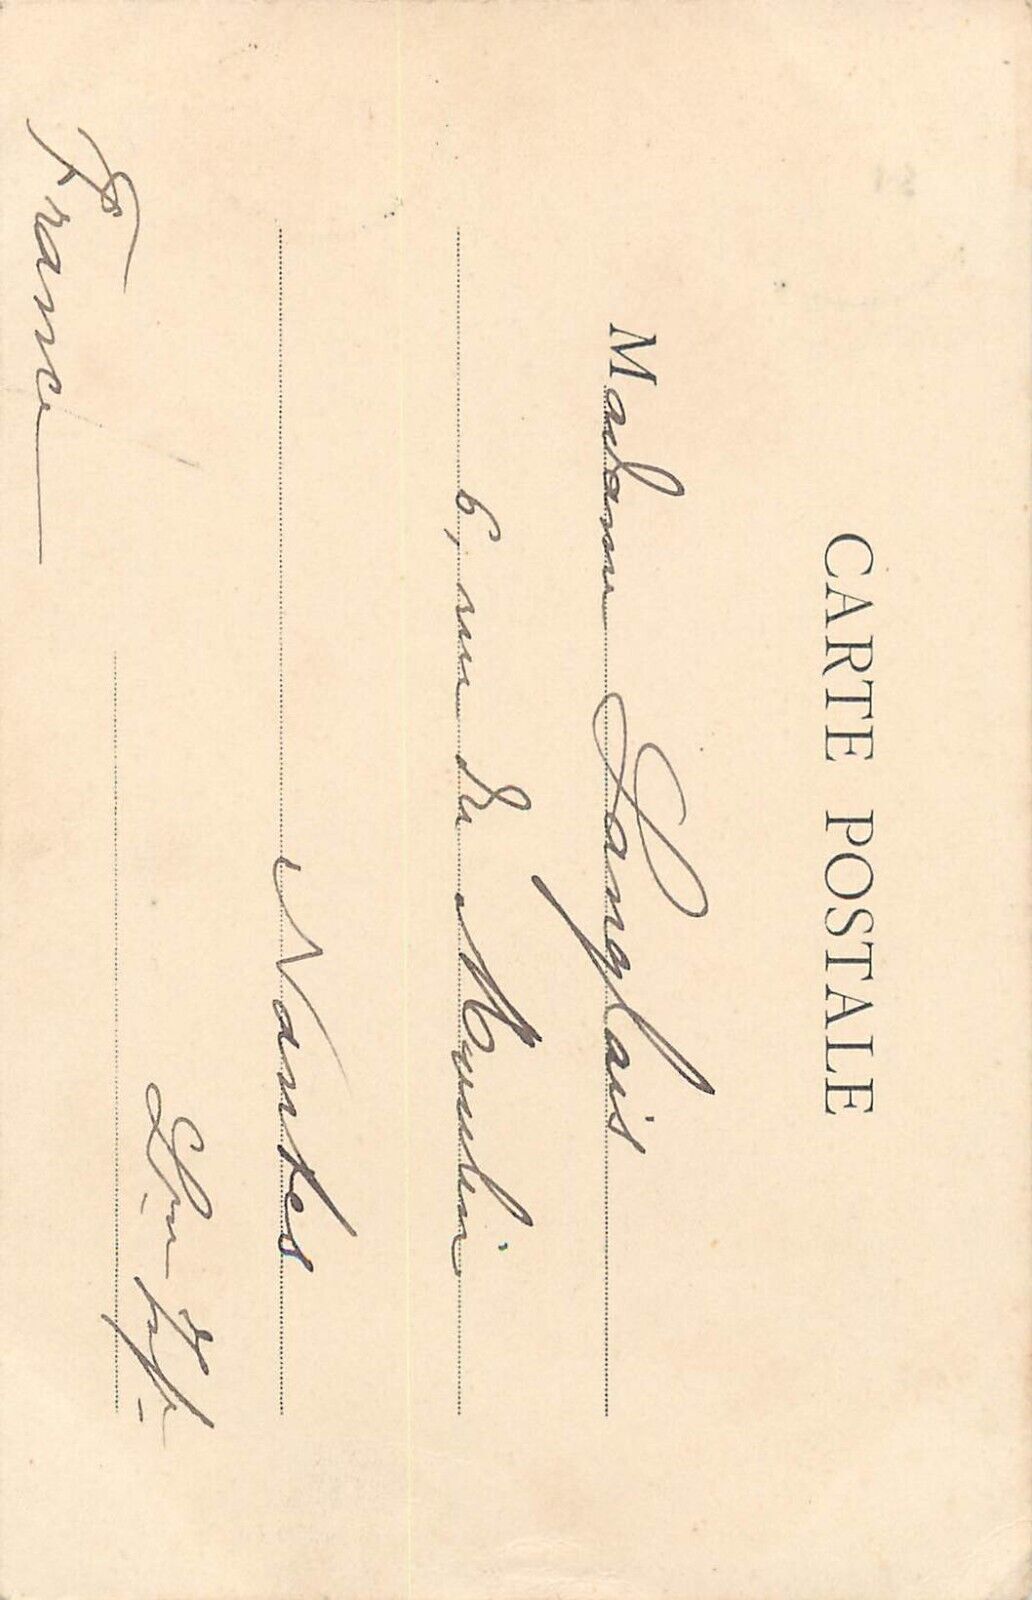 CARTE POSTALE
Madame Langlais
6, rue du Moulin
Nantes
Lre Infre
France